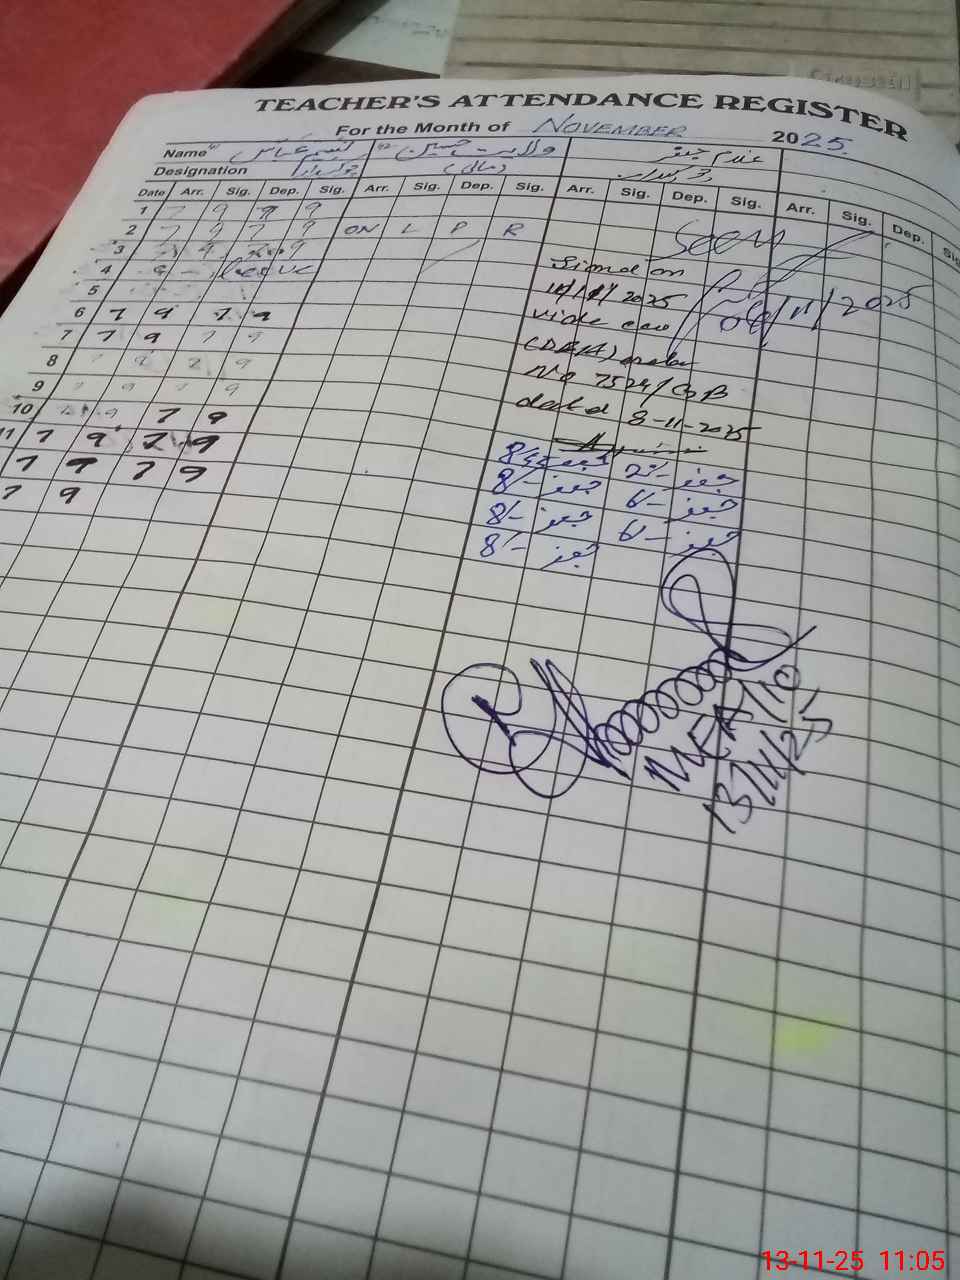 TEACHER'S ATTENDANCE REGISTER
For the Month of NOVEMBER 2025
Name نسیم عباس ولایت حسین غلام جعفر
Designation چوکیدار (مالی)
Date Arr. Sig. Dep. Sig. Arr. Sig. Dep. Sig. Arr. Sig. Dep. Sig. Arr. Sig. Dep. Sig.
1 7 9 7 9
2 7 9 7 9 ON L P R Seen
3 7 9 7 9
4 Leave 06/11/2025
5 2025
6 7 9 7 9 vide ceo
7 7 9 7 9 (DEA) order
8 9 7 9 No 7524/
9 7 9 7 9 dated 8-11-2025
10 7 9 7 9
11 7 9 7 9 جعفر جعفر
7 9 7 9 8/- جعفر 6/- جعفر
7 9 8/- جعفر 6/- جعفر
8/- جعفر
MEA/10
13/11/25
13-11-25 11:05